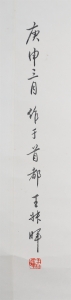 庚申三月作于首都王 暉